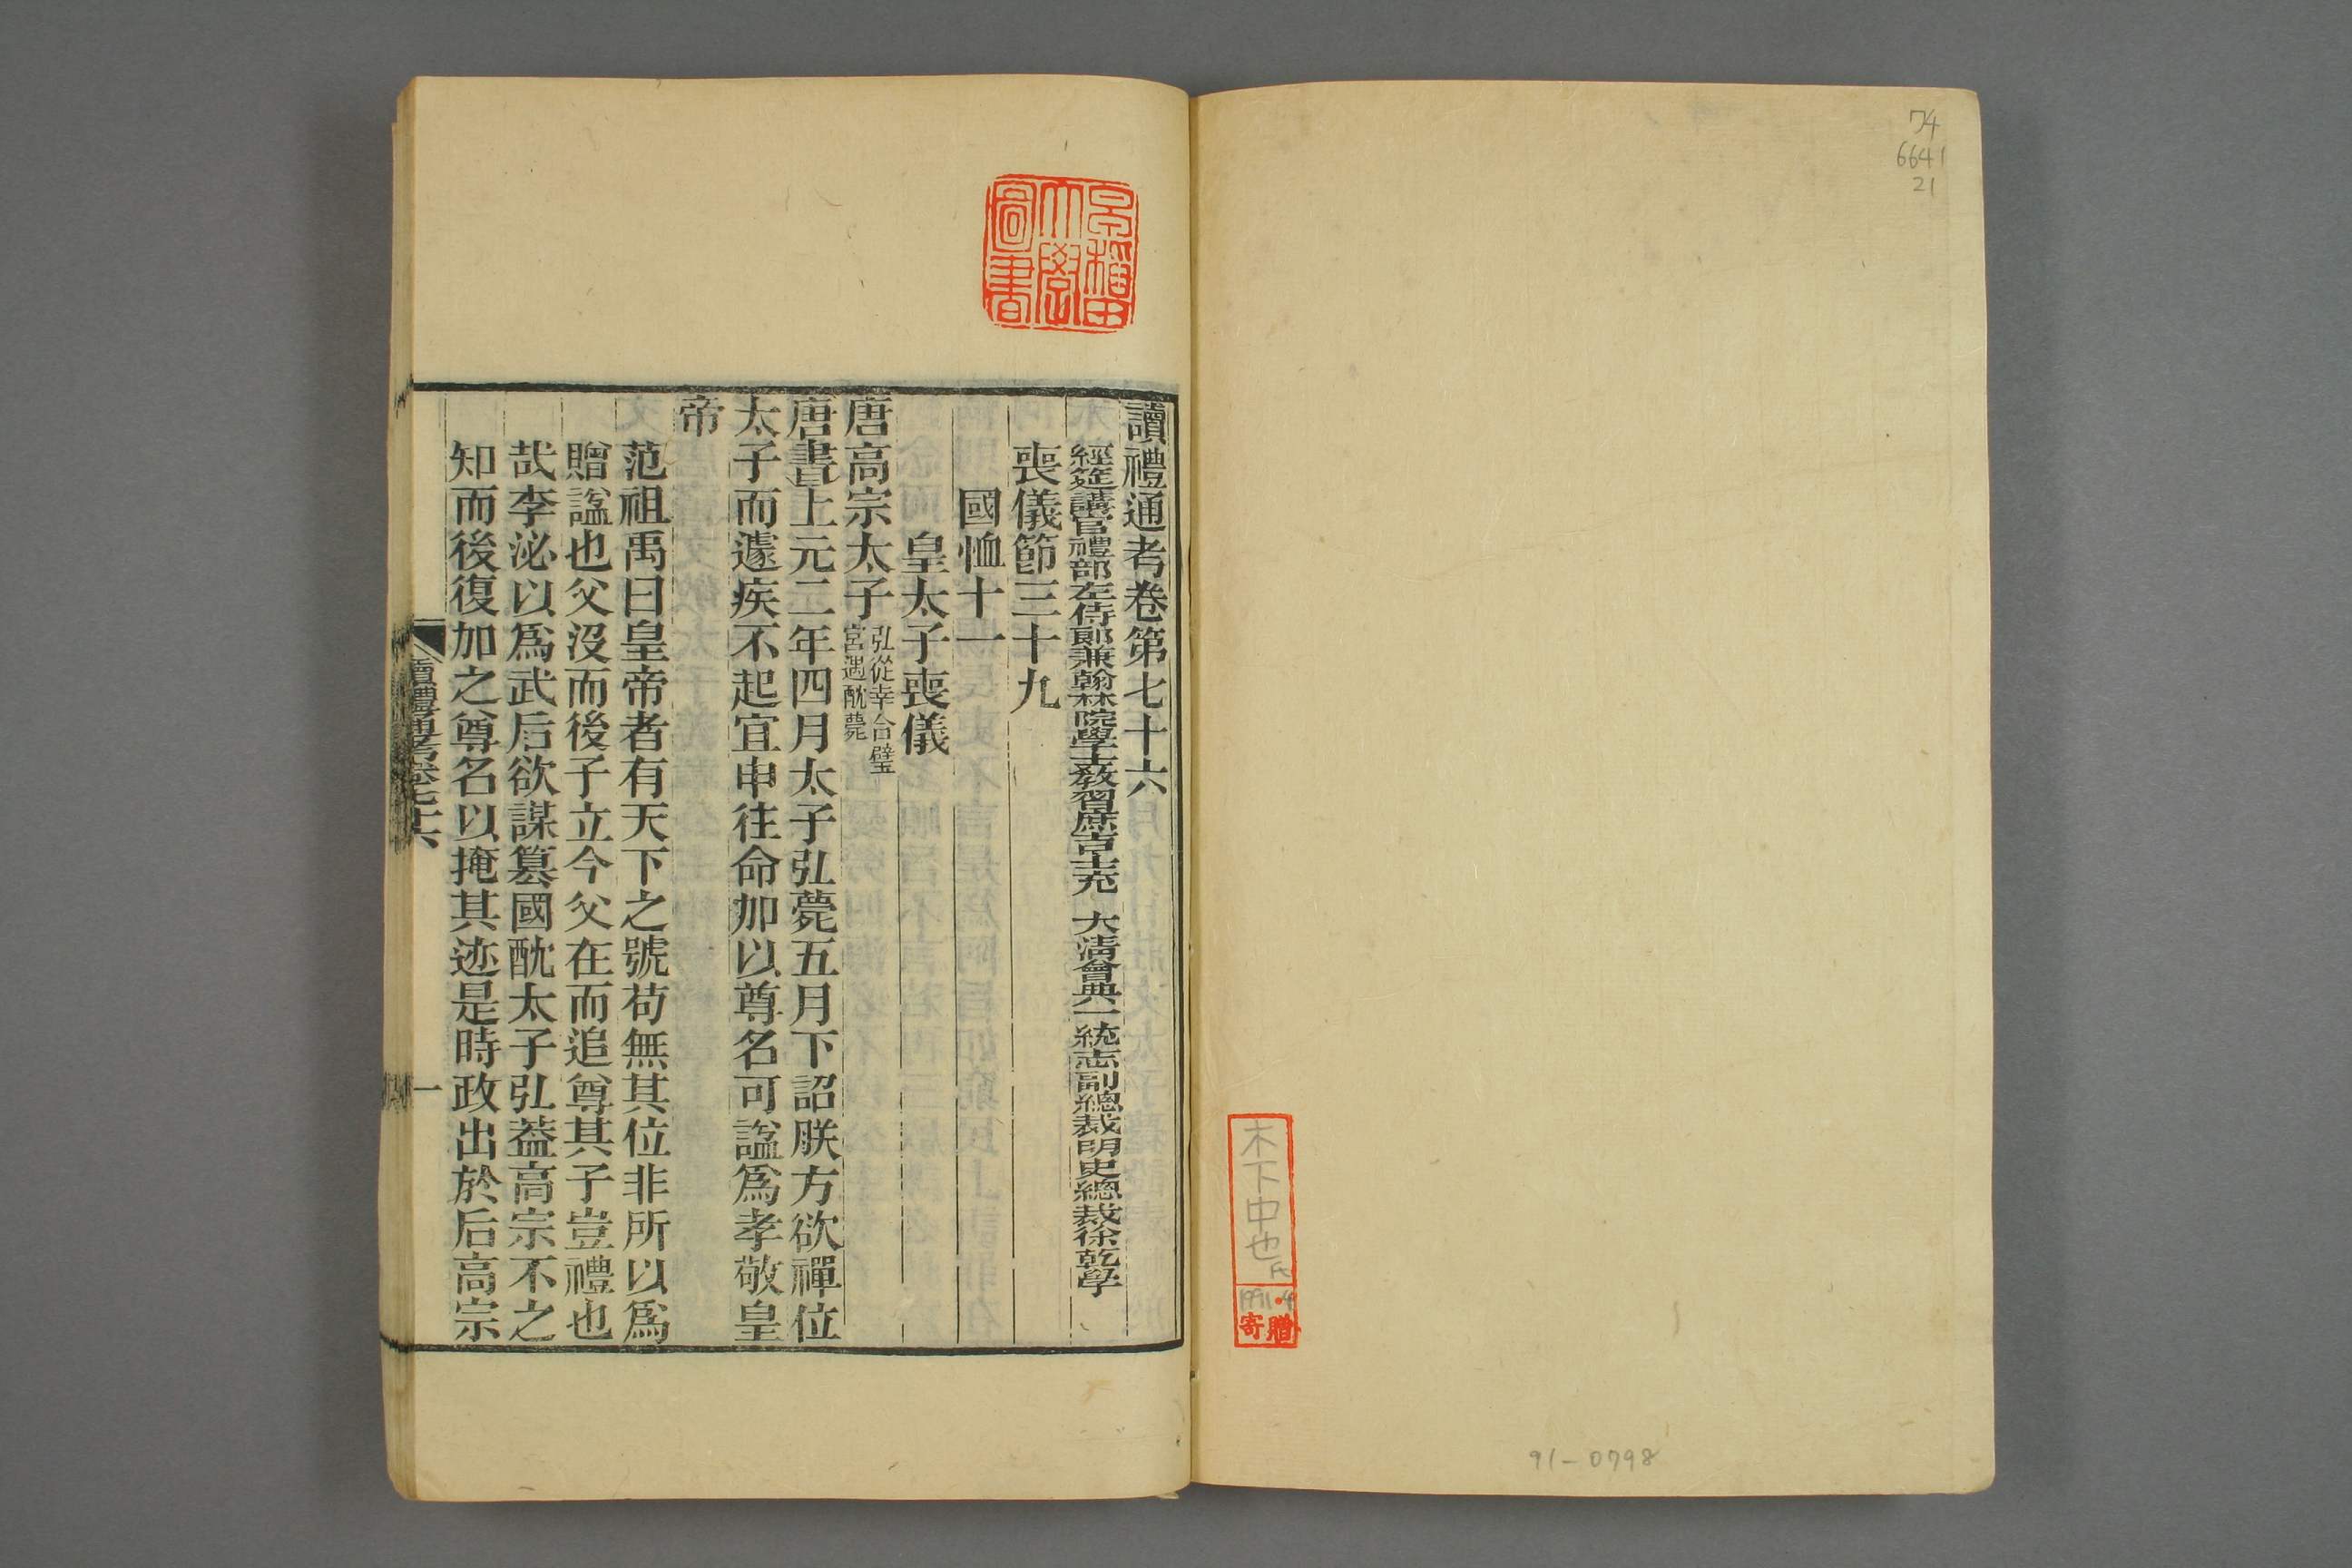 74
6641
21
木下中也氏
1991.4
寄贈
91-0798
早稲田大學圖書
讀禮通考卷第七十六
經筵講官禮部左侍郎兼翰林院學士教習庶吉士充 大清會典一統志副總裁明史總裁徐乾學
喪儀節三十九
國恤十一
皇太子喪儀
唐高宗太子弘從幸合璧宮遇酖薨
唐書上元二年四月太子弘薨五月下詔朕方欲禪位
太子而遽疾不起宜申往命加以尊名可諡爲孝敬皇
帝
范祖禹曰皇帝者有天下之號苟無其位非所以爲
贈諡也父沒而後子立今父在而追尊其子豈禮也
哉李泌以爲武后欲謀簒國酖太子弘葢高宗不之
知而後復加之尊名以掩其迹是時政出於后高宗
讀禮通考卷七十六
一